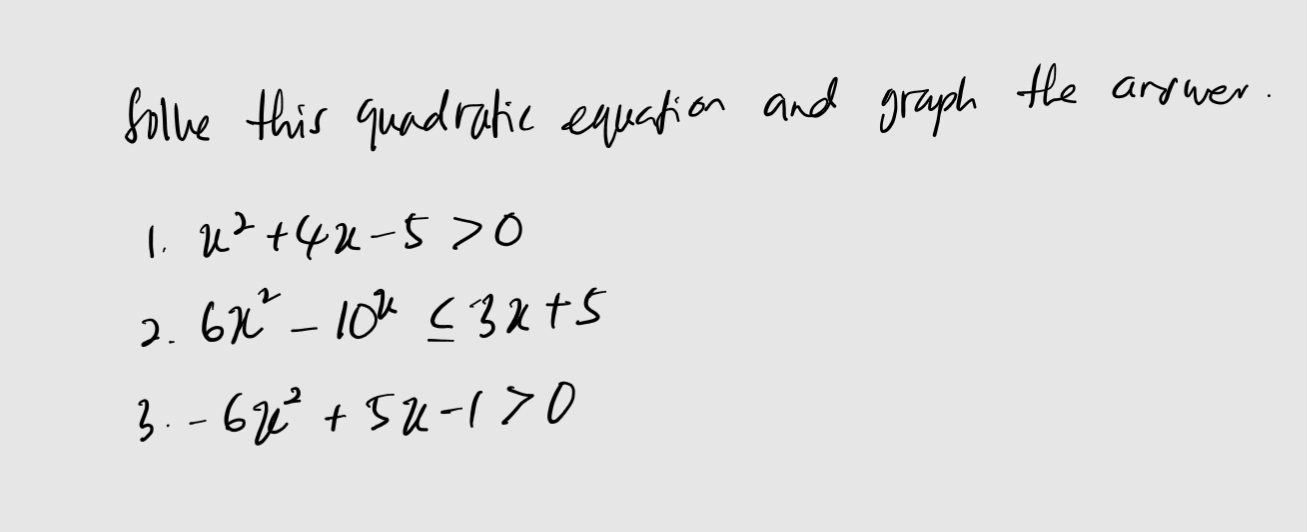 Solve this quadratic equation and graph the answer.
1. x² + 4x - 5 > 0
2. 6x² - 10ˣ ≤ 3x + 5
3. - 6x² + 5x - 1 > 0